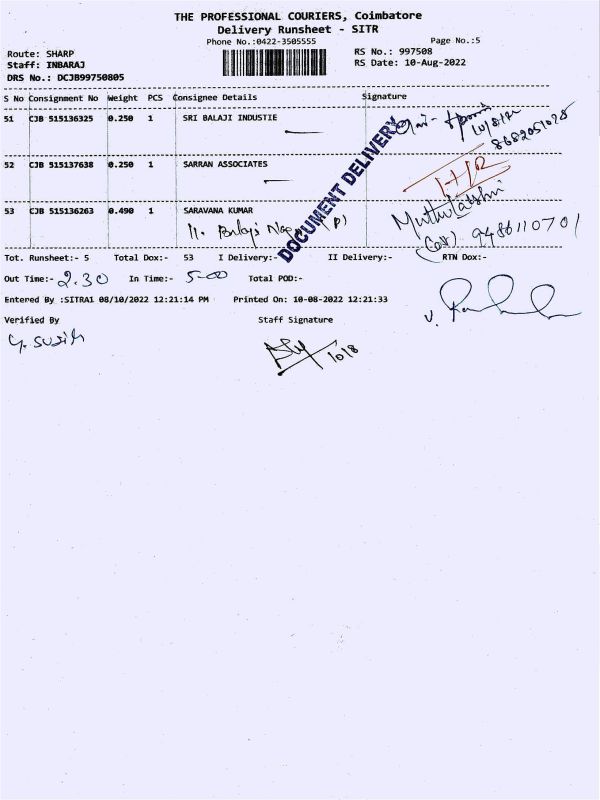 THE PROFESSIONAL COURIERS, Coimbatore
Delivery Runsheet - SITR
Phone No.:0422-3505555
Page No.:5
Route: SHARP
RS No.: 997508
Staff: INBARAJ
RS Date: 10-Aug-2022
DRS No.: DCJB99750805
S No Consignment No Weight PCS Consignee Details Signature
51 CJB 515136325 0.250 1 SRI BALAJI INDUSTIE
10/8/22
8682051028
52 CJB 515137638 0.250 1 SARRAN ASSOCIATES
53 CJB 515136263 0.490 1 SARAVANA KUMAR
Muthulakshmi
11. Balaji
9486110701
DOCUMENT DELIVERY
Tot. Runsheet:- 5 Total Dox:- 53 I Delivery:- II Delivery:- RTN Dox:-
Out Time:- 2.30 In Time:- 5-00 Total POD:-
Entered By :SITRA1 08/10/2022 12:21:14 PM Printed On: 10-08-2022 12:21:33
Verified By Staff Signature
10/8